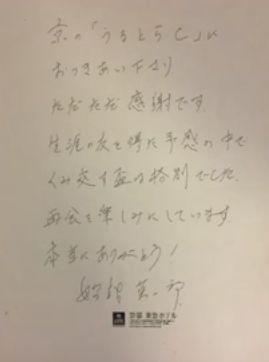 京の「うるとらC」に
おつきあい下さり
ただただ感謝です。
生涯の友を得た予感の中で
くみ交す盃は格別でした。
再会を楽しみにしています。
本当にありがとう!
京都 東急ホテル